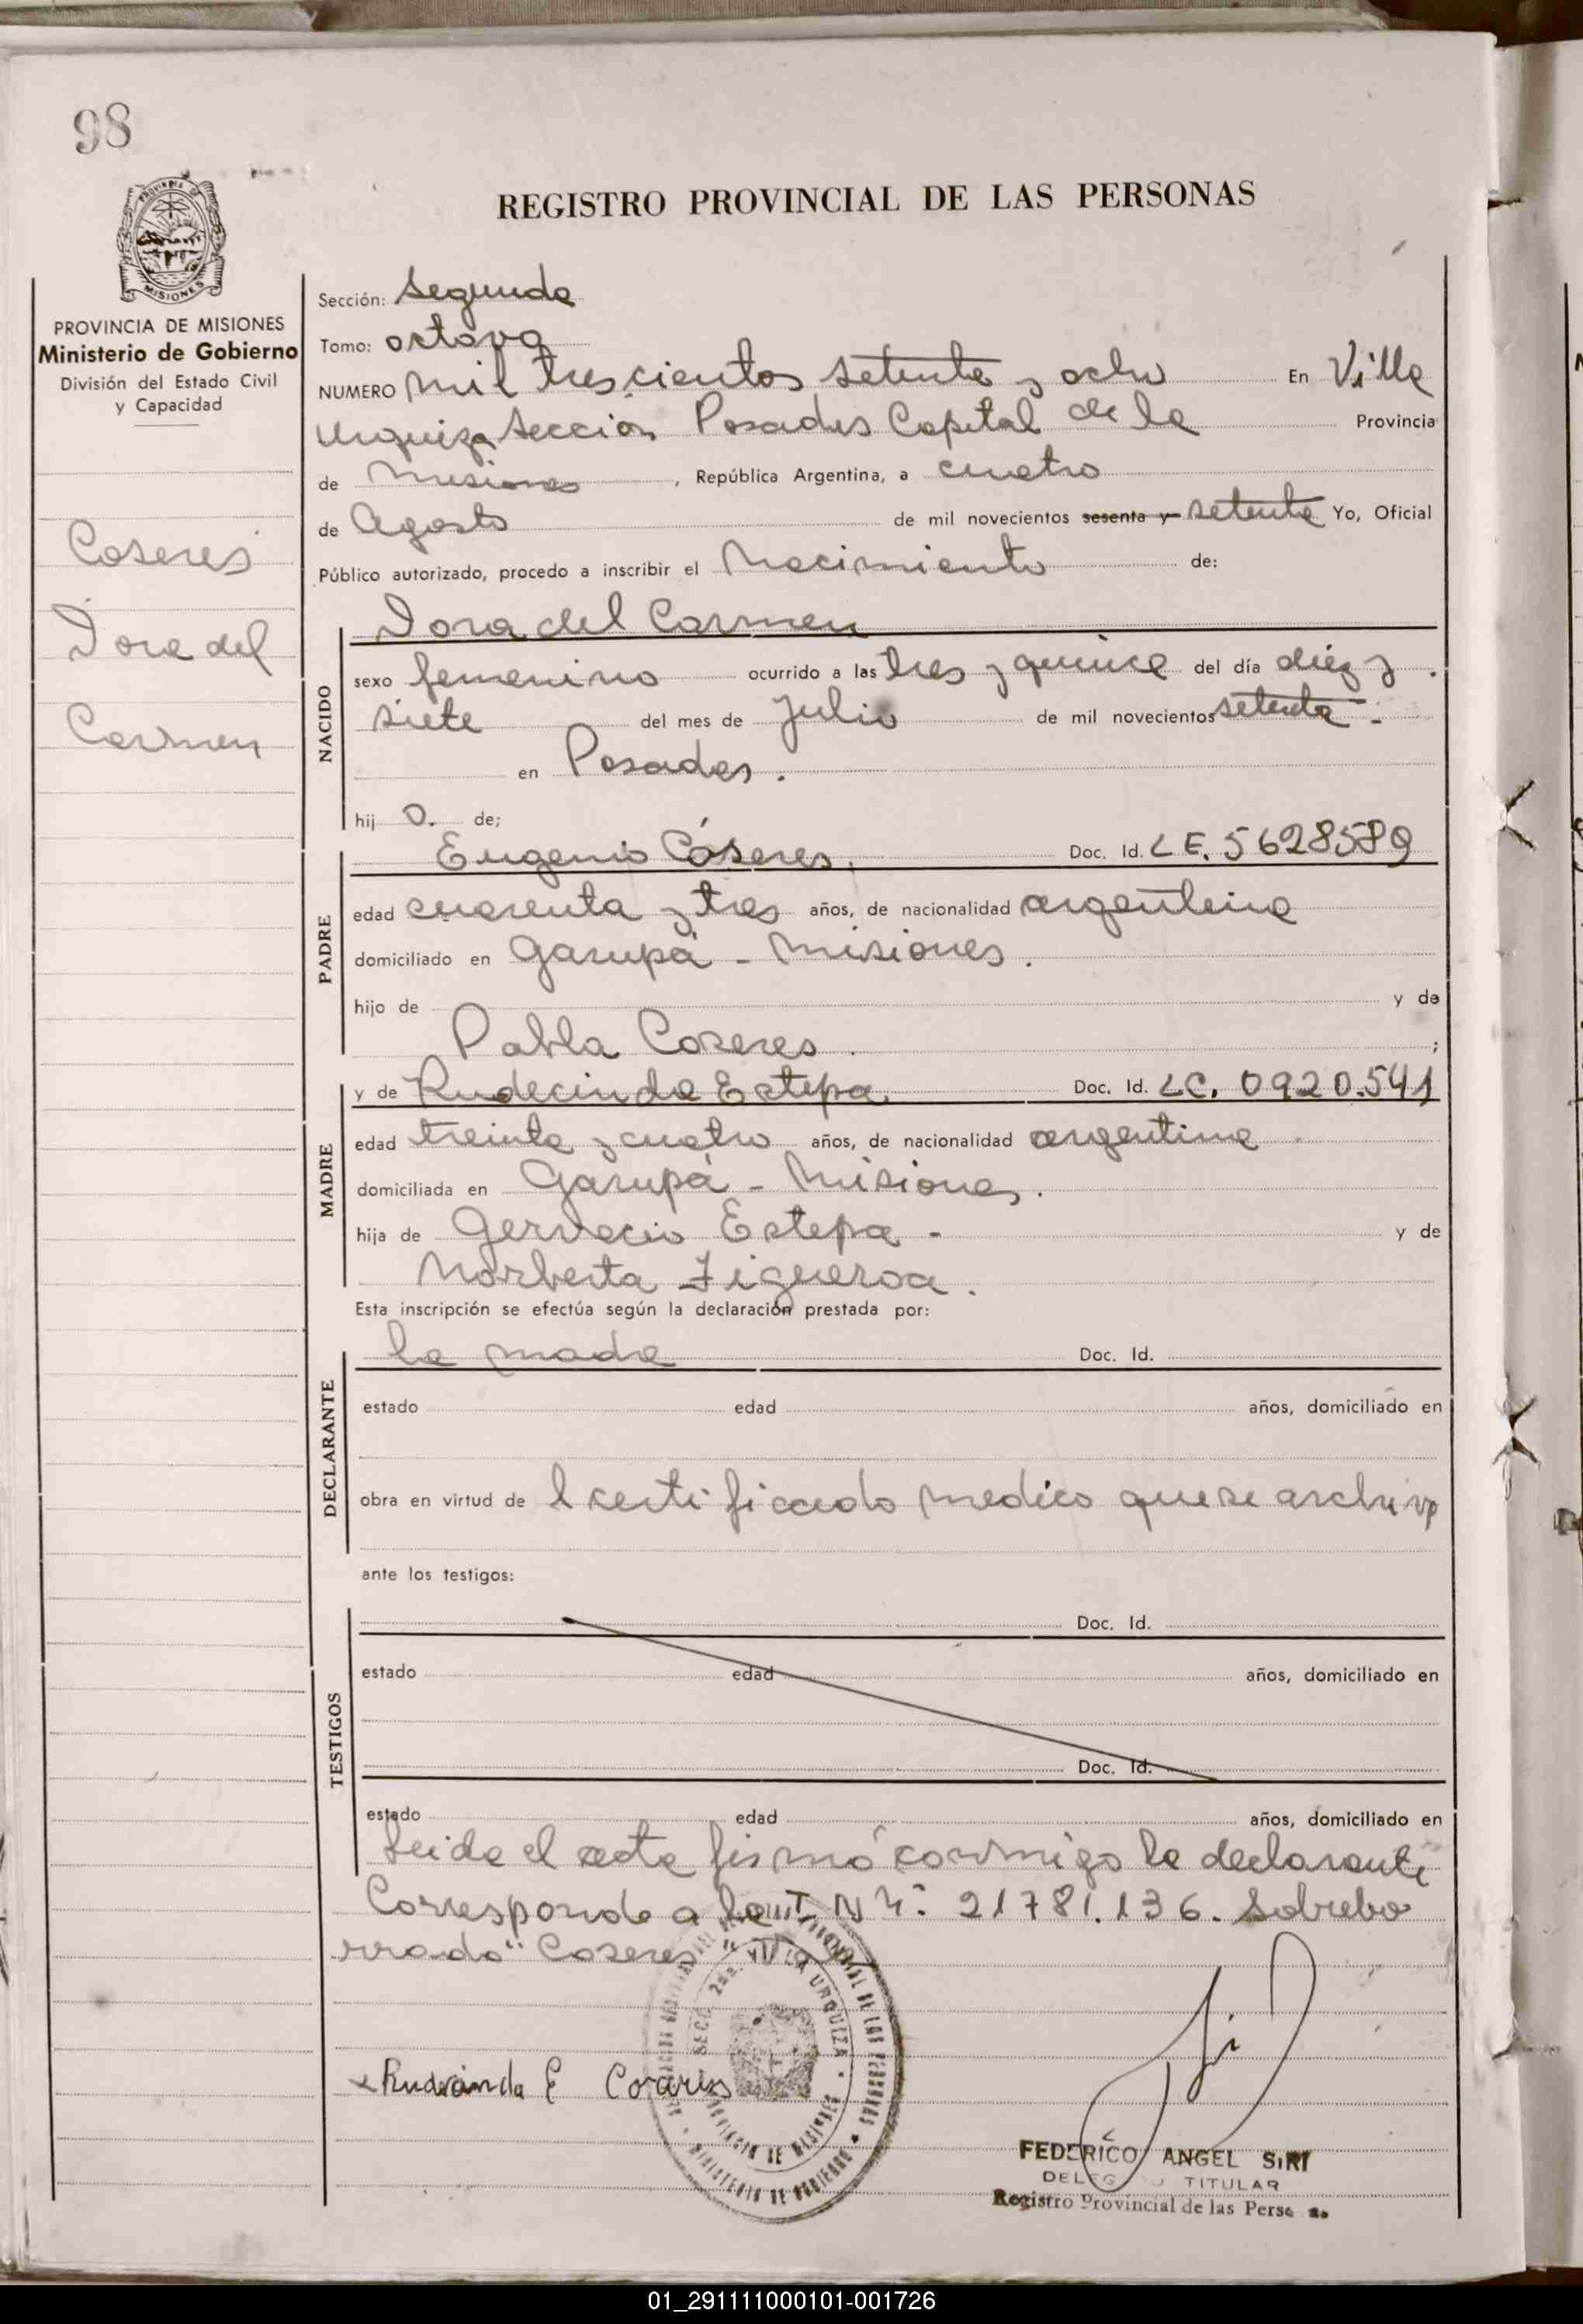 98
REGISTRO PROVINCIAL DE LAS PERSONAS
PROVINCIA DE MISIONES
Ministerio de Gobierno
División del Estado Civil
y Capacidad
Coseres
Dora del
Carmen
Sección: Segunda
Tomo: octavo
NUMERO mil trescientos setenta y ocho En Villa
Urquiza Sección Posadas Capital de la Provincia
de Misiones, República Argentina, a cuatro
de Agosto de mil novecientos sesenta y setenta Yo, Oficial
Público autorizado, procedo a inscribir el Nacimiento de:
Dora del Carmen
NACIDO
sexo femenino ocurrido a las tres y quince del día diéz y
siete del mes de Julio de mil novecientos setenta.-
en Posadas.
hij o. de;
PADRE
Eugenio Cóseres. Doc. Id. L E. 5628589
edad cuarenta y tres años, de nacionalidad argentina
domiciliado en Garupá - Misiones.
hijo de y de
Pabla Coseres. ;
MADRE
y de Rudecinda Estepa Doc. Id. LC. 0920.541
edad treinta y cuatro años, de nacionalidad argentina
domiciliada en Garupá - Misiones.
hija de Gervacio Estepa - y de
Norberta Figueroa.
Esta inscripción se efectúa según la declaración prestada por:
DECLARANTE
la madre Doc. Id.
estado edad años, domiciliado en
obra en virtud de l certificado medico que se archiva
ante los testigos:
TESTIGOS
Doc. Id.
estado edad años, domiciliado en
Doc. Id.
estado edad años, domiciliado en
Leida el acta firmó conmigo la declarante
Corresponde a la Nº: 21781.136. Sobrebo
rrado "Coseres"
E
FEDERICO ANGEL SIRI
TITULAR
Registro Provincial de las Perso
SECC. 2da. VILLA URQUIZA
PROVINCIA DE MISIONES
MINISTERIO DE GOBIERNO
01_291111000101-001726